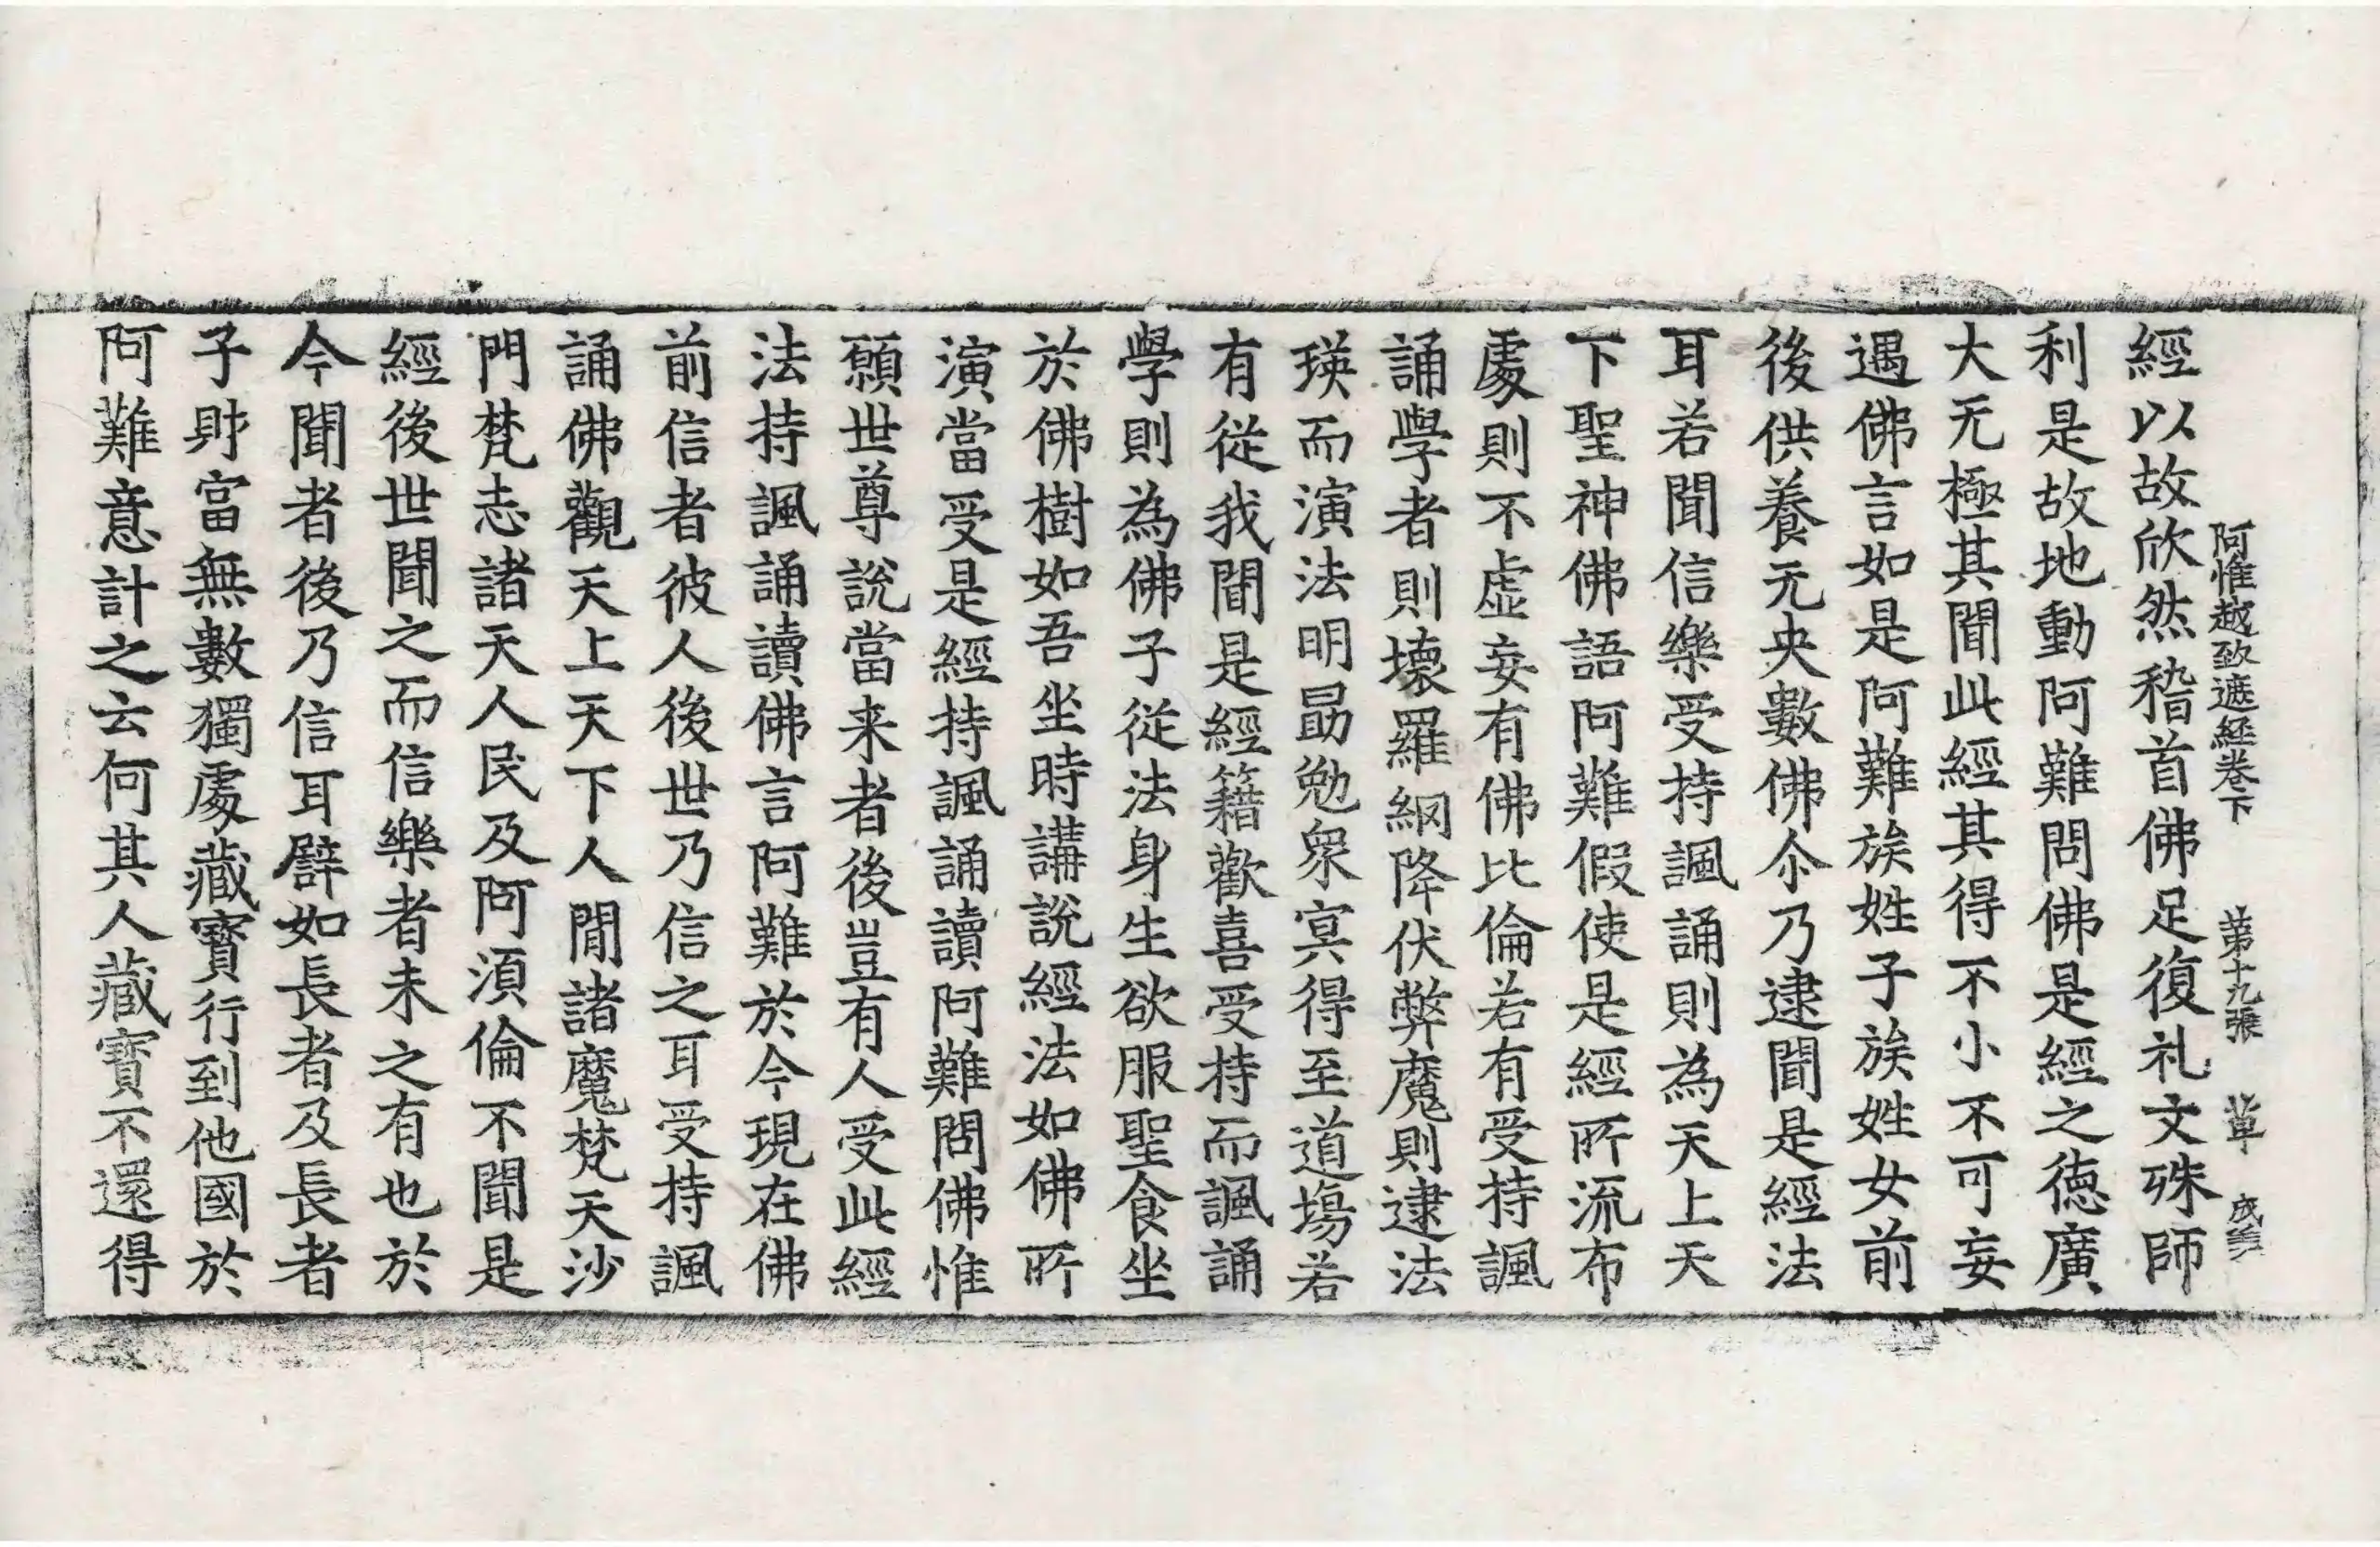 阿惟越致遮經卷下　第十九張　草　成
經以故欣然稽首佛足復礼文殊師
利是故地動阿難問佛是經之德廣
大无極其聞此經其得不小不可妄
遇佛言如是阿難族姓子族姓女前
後供養无央數佛尒乃逮聞是經法
耳若聞信樂受持諷誦則為天上天
下聖神佛語阿難假使是經所流布
處則不虛妄有佛比倫若有受持諷
誦學者則壞羅網降伏弊魔則逮法
瑛而演法明勗勉眾冥得至道場若
有從我聞是經籍歡喜受持而諷誦
學則為佛子從法身生欲服聖食坐
於佛樹如吾坐時講說經法如佛所
演當受是經持諷誦讀阿難問佛惟
願世尊說當来者後豈有人受此經
法持諷誦讀佛言阿難於今現在佛
前信者彼人後世乃信之耳受持諷
誦佛觀天上天下人間諸魔梵天沙
門梵志諸天人民及阿須倫不聞是
經後世聞之而信樂者未之有也於
今聞者後乃信耳辟如長者及長者
子財富無數獨處藏寶行到他國於
阿難意計之云何其人藏寶不還得